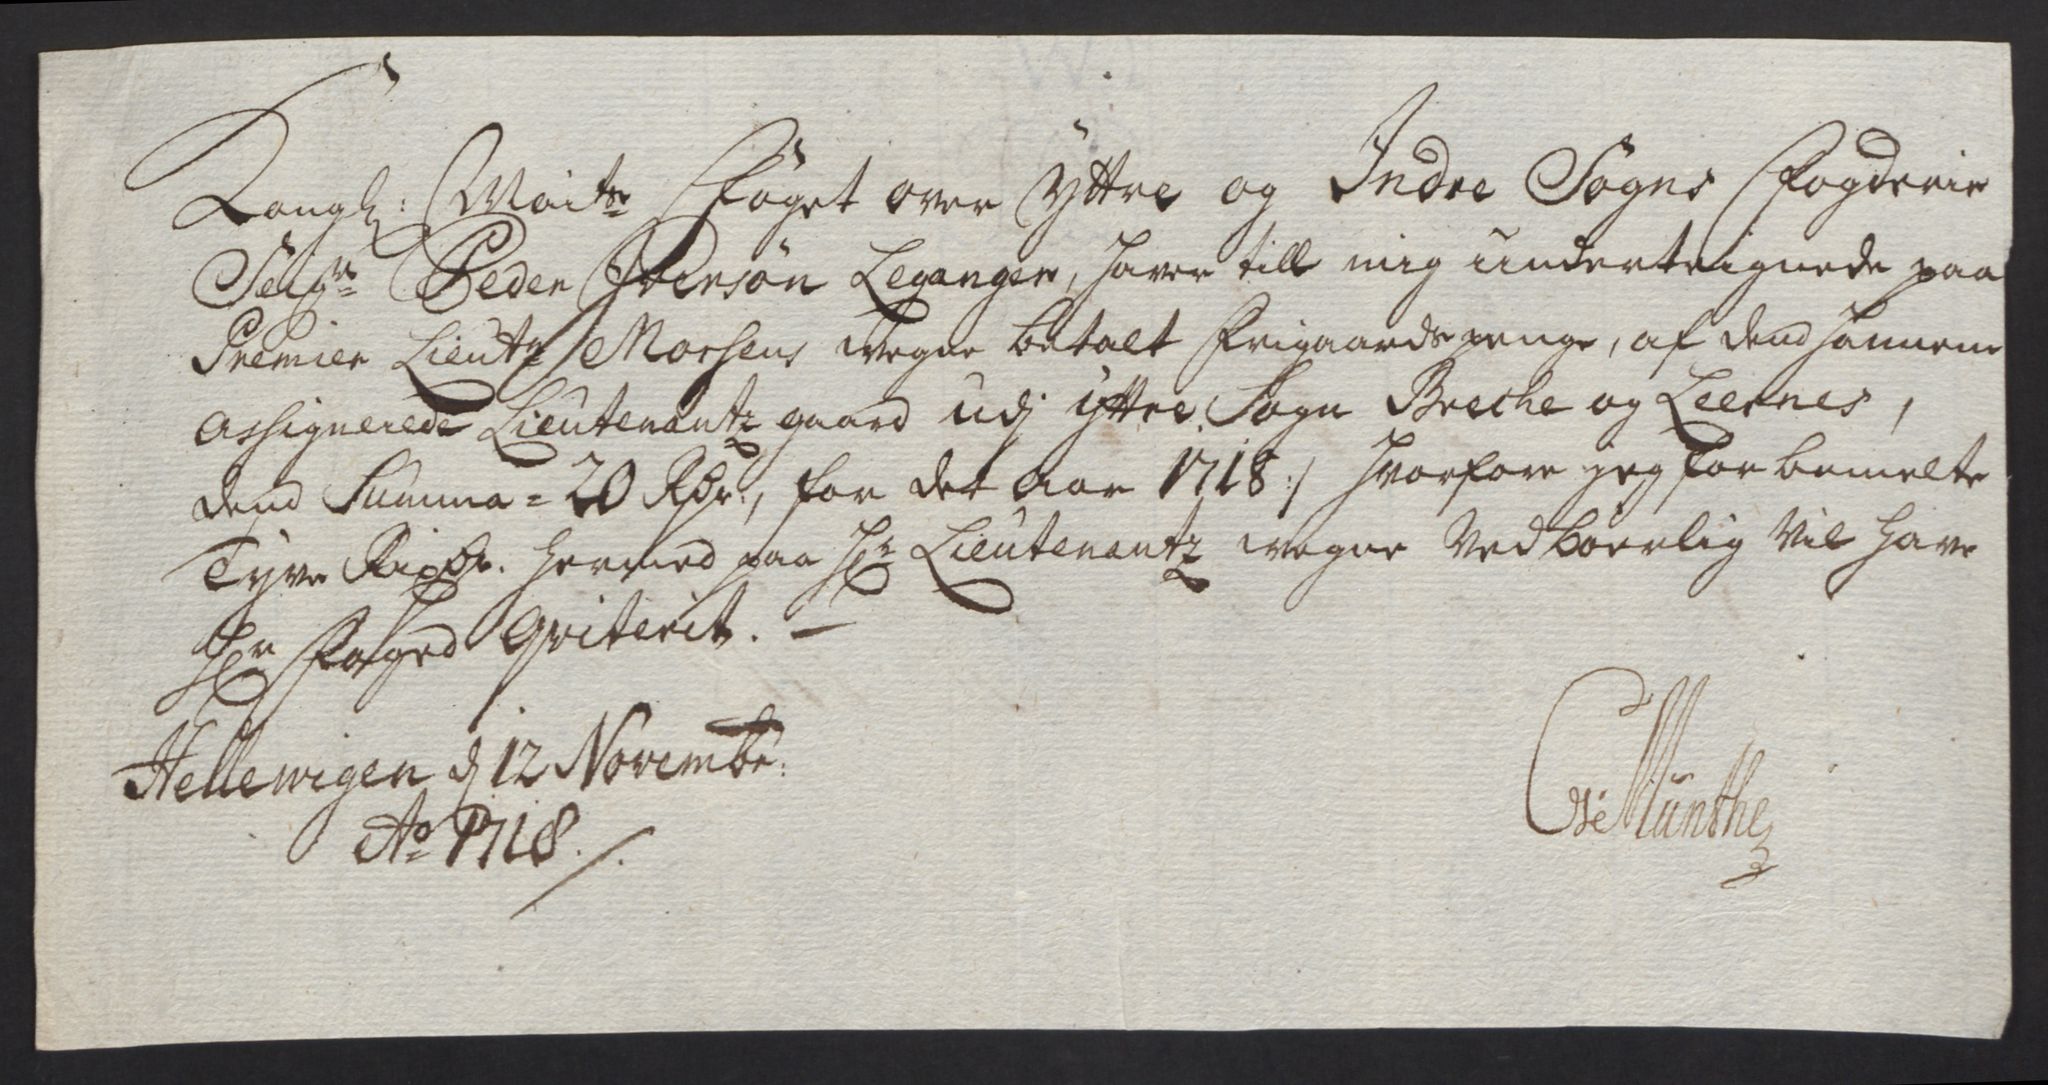 Kongl: Maits Foget over Yttre og Indre Sogns Fogderie
Seigr Peder Iversøn Leganger, haver till mig underteignede paa
Premier Lieutn Morsens wegne betalt Frigaards penge, af dend hannem
assignerede Lieutenantz gaard udj yttre Sogn Breche og Leernes,
dend Summa = 20 Rdr, for det aar 1718 :/ hvorfore jeg for bemelte
Tyve Rixdr. hermed paa Hr Lieutenantz wegne Vedbørlig Vil have
Hr Foged Qviterit. —
Hellewigen d 12 Novembr:
Ao 1718 ./.
Münthe